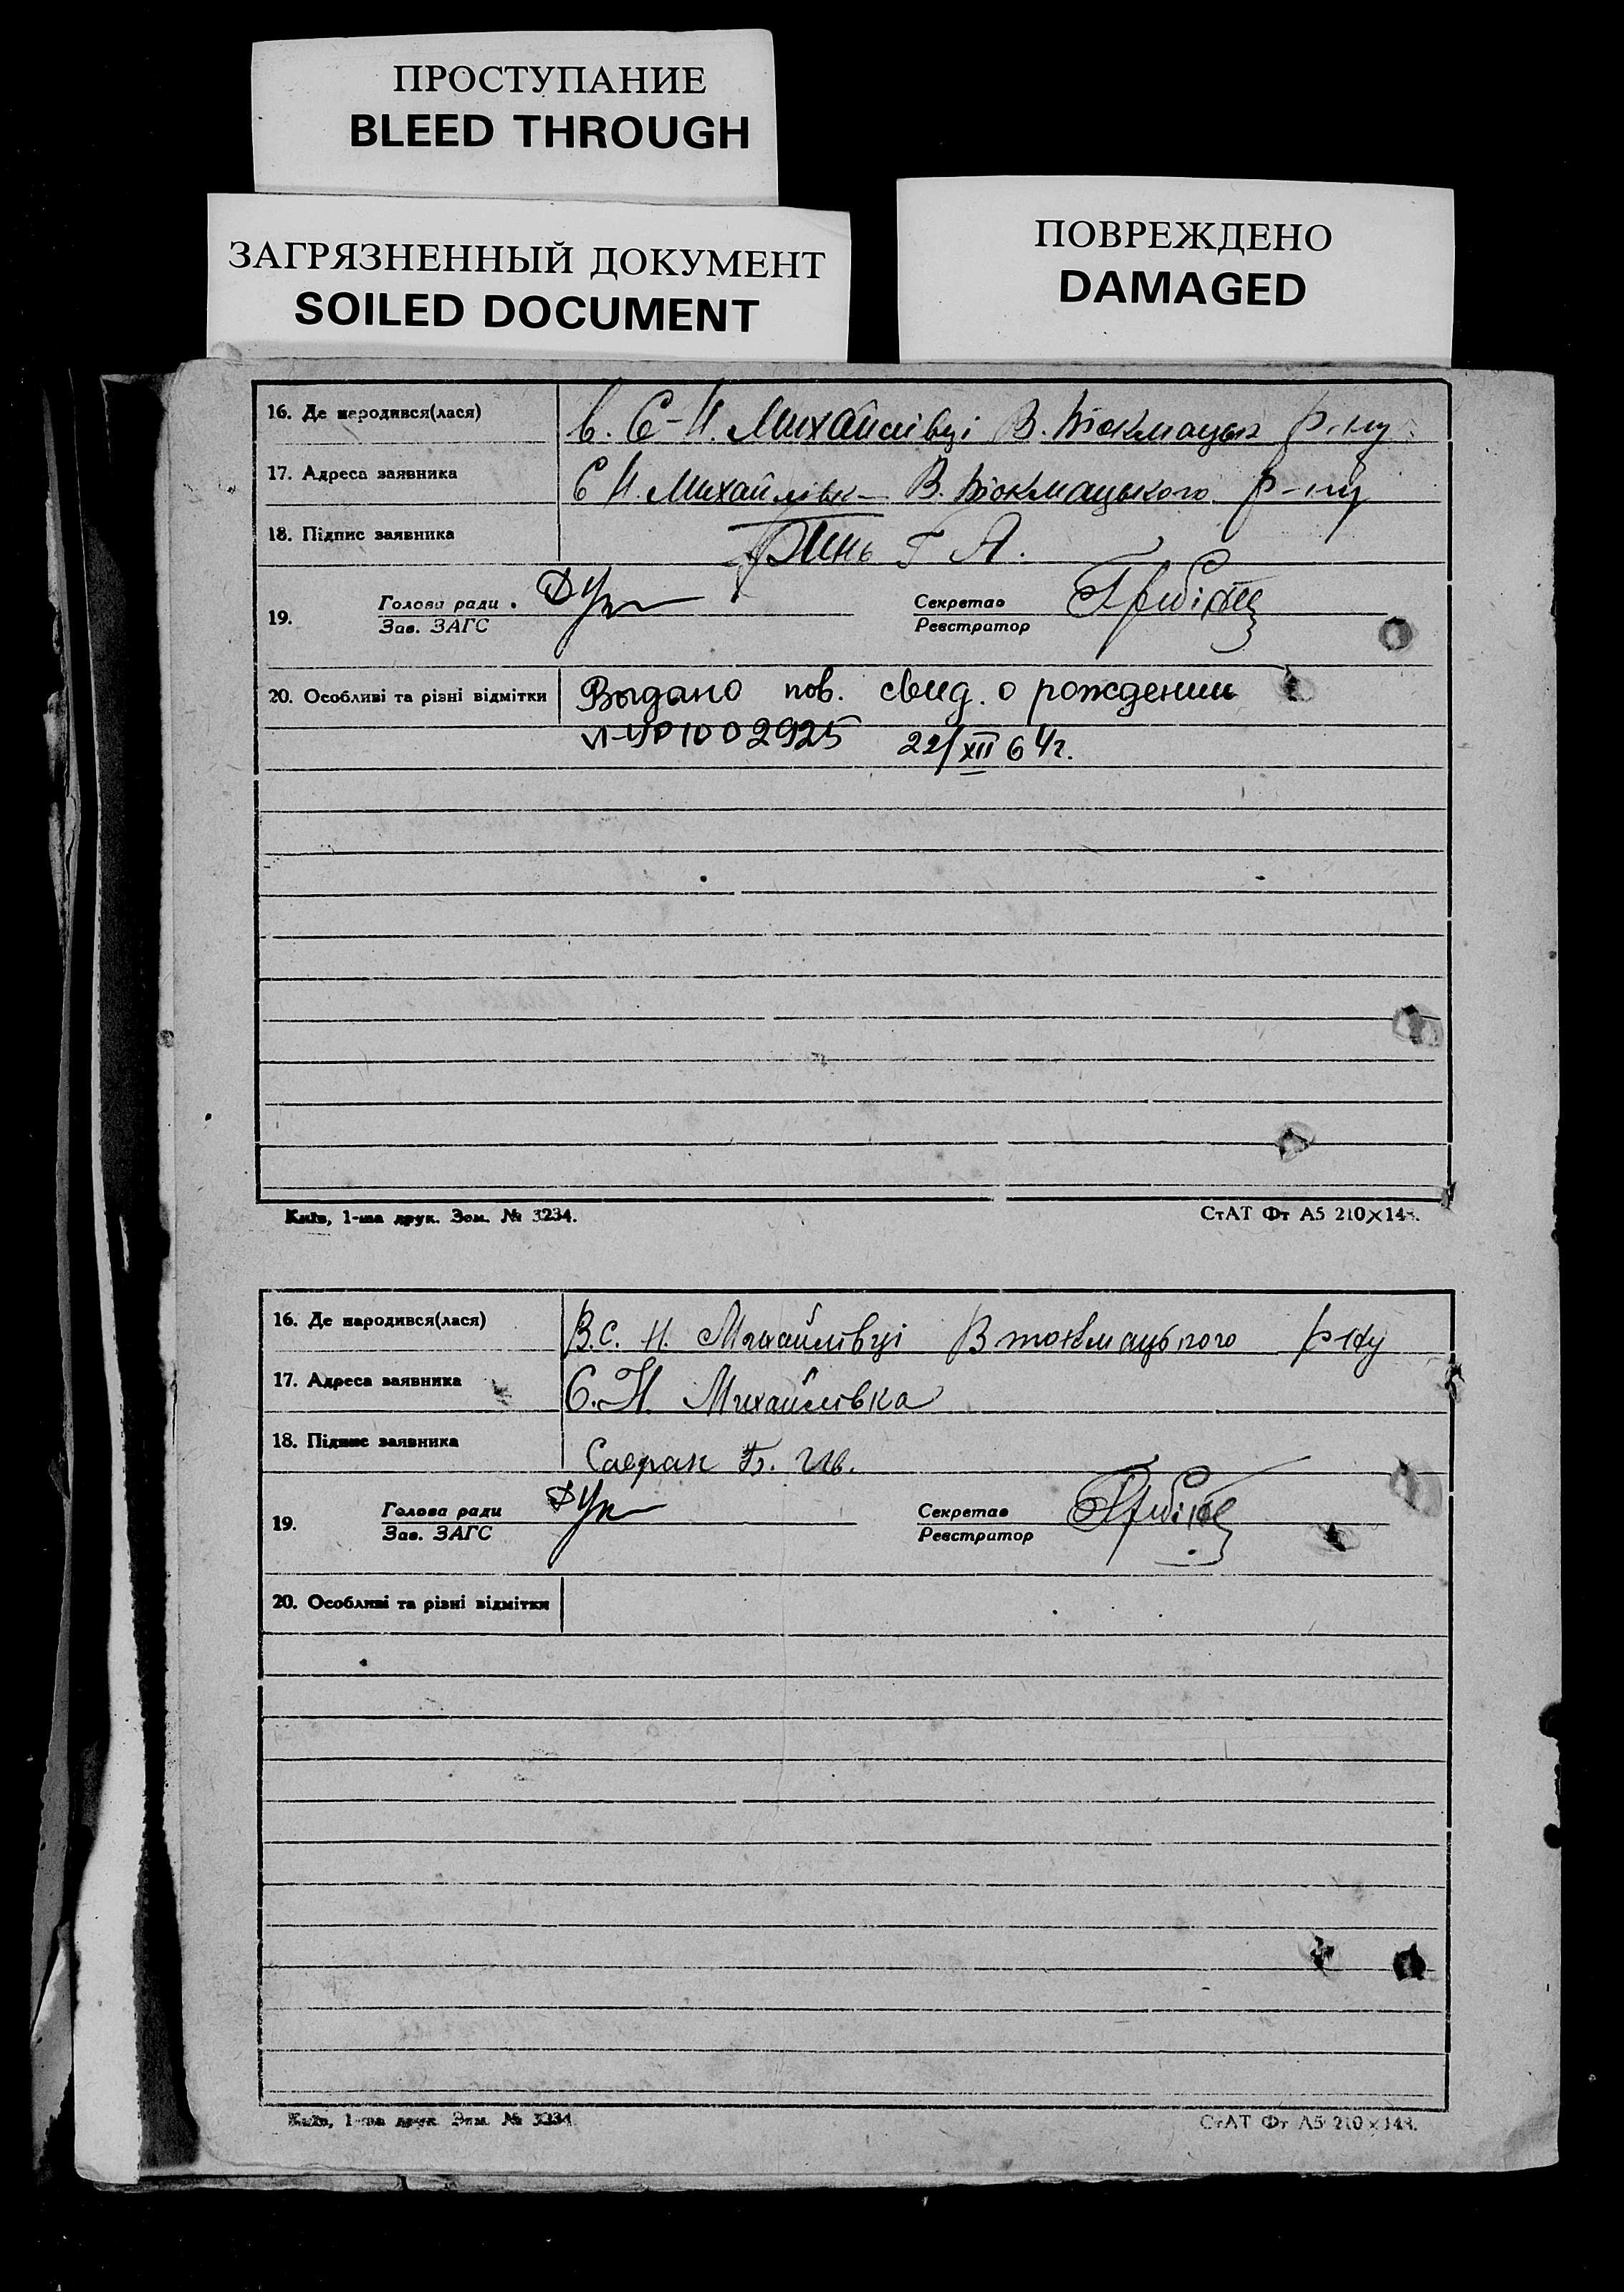 ПРОСТУПАНИЕ
BLEED THROUGH
ЗАГРЯЗНЕННЫЙ ДОКУМЕНТ
SOILED DOCUMENT
ПОВРЕЖДЕНО
DAMAGED
16. Де народився(лася) в. С-Н. Михайлівці В. Токмацьк р-ну
17. Адреса заявника С Н. Михайлівк В. Токмацького р-ну
18. Підпис заявника Г А.
19. Голова ради Секретар
Зав. ЗАГС Реєстратор
20. Особливі та різні відмітки Выдано пов. свид. о рождении
002925 22/XII 64г.
Київ, 1-ша друк. Зам. № 3234.
СтАТ Фт А5 210×148.
16. Де народився(лася) В.С. Н. Михайлівці В токмацького р-ну
17. Адреса заявника С. Н. Михайлівка
18. Підпис заявника Ів.
19. Голова ради Секретар
Зав. ЗАГС Реєстратор
20. Особливі та різні відмітки
Київ, 1-ша друк. Зам. № 3234.
СтАТ Фт А5 210×148.